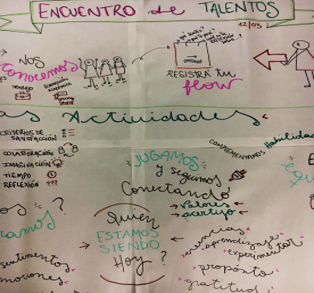 ENCUENTRO de TALENTOS
12/03
NOS
Conocemos
REGISTRÁ tu
flow
as Actividades
CRITERIOS DE
SATISFACCIÓN
COLABORACIÓN
IMAGINACIÓN
TIEMPO
REFLEXIÓN ???
COMPLEMENTAMOS Habilidad
JUGAMOS
y seguimos
Conectando
→ Valores
→ acertijo
os ?
camos
Quien
ESTAMOS
SIENDO
Hoy ?
sentimientos
mociones
aprendizaje
experimentar
propósito
gratitud